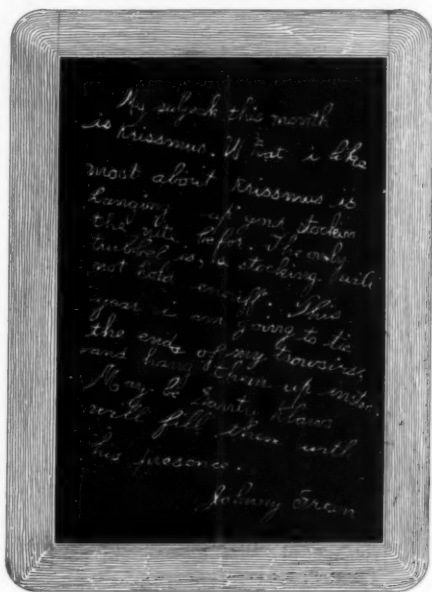 My subjeck this month
is Krissmus. What i like
most about Krissmus is
hanging up your stockin
the nite befor. The only
trubbel is, a stocking will
not hold enuff. This
year i am going to tie
the ends of my trowsirs
and hang them up insted.
May be Santy Klaws
will fill them with
his presence.
Johnny